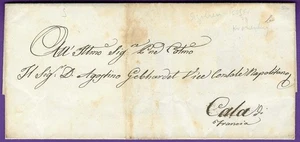 All' Illmo Sigr Pne Colmo
Il Sigr D. Agostino Gebhardet Vice Console Napolitano
Cala
Francia